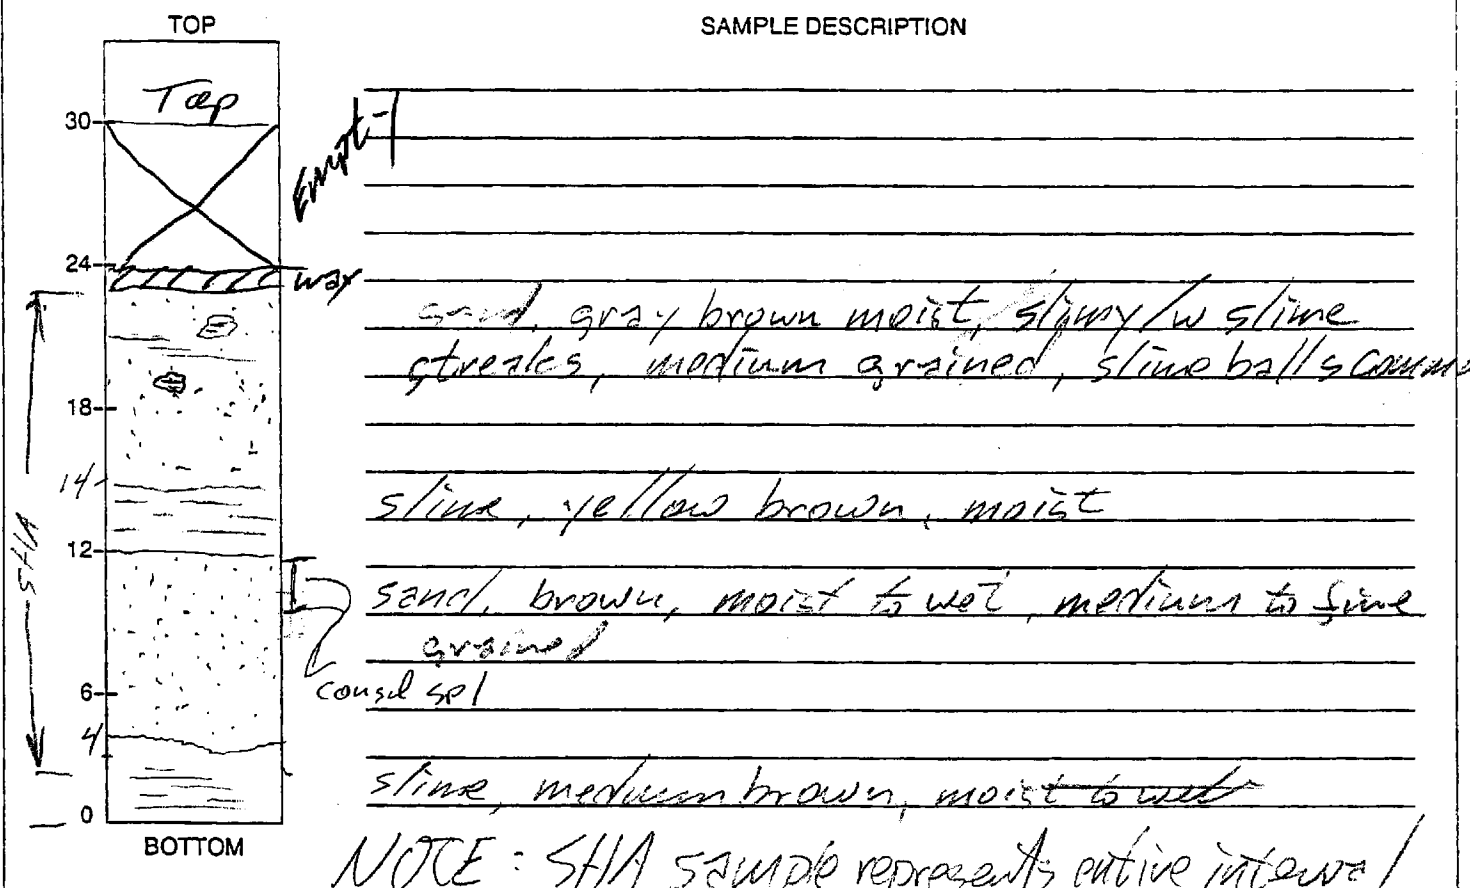 TOP
SAMPLE DESCRIPTION
Top
30
Empty
24
wax
sand, gray brown moist, slimy /w slime
streaks, medium grained, slime balls comm
18
14
slime, yellow brown, moist
SHA
12
sand, brown, moist to wet, medium to fine
grained
consol spl
6
4
slime, medium brown, moist to wet
0
BOTTOM
NOTE: SHA sample represents entire interval